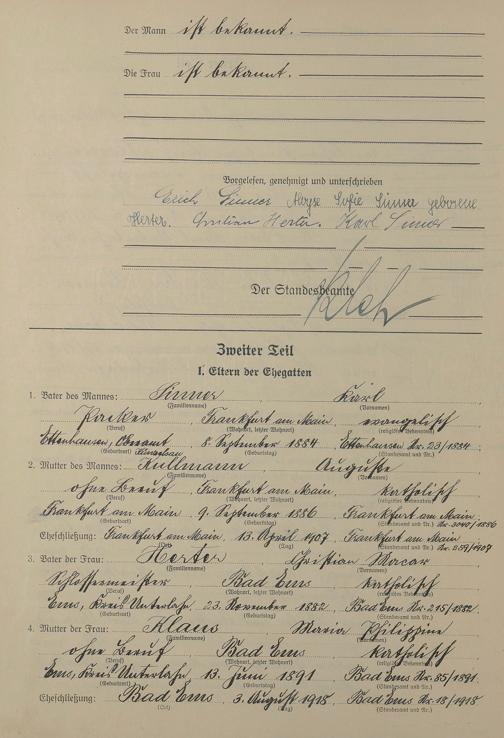 Der Mann ist bekannt.
Die Frau ist bekannt.
Vorgelesen, genehmigt und unterschrieben
Erich Sinner Aloyse Sofie Sinner geborene
Herter. Christian Herter. Karl Sinner
Der Standesbeamte
Zweiter Teil
I. Eltern der Ehegatten
1. Vater des Mannes: Sinner Karl
(Familienname) (Vornamen)
Packer Frankfurt am Main, evangelisch
(Beruf) (Wohnort, letzter Wohnort) (religiöses Bekenntnis)
Ettenhausen, 8. September 1884 Ettenhausen Nr. 23/1884
(Geburtsort) (Geburtstag) (Standesamt und Nr.)
2. Mutter des Mannes: Kullmann Auguste
(Familienname) (Vornamen)
ohne Beruf Frankfurt am Main, katholisch
(Beruf) (Wohnort, letzter Wohnort) (religiöses Bekenntnis)
Frankfurt am Main 9. September 1886 Frankfurt am Main Nr. 3040/1886
(Geburtsort) (Geburtstag) (Standesamt und Nr.)
Eheschließung: Frankfurt am Main, 13. April 1907 Frankfurt am Main Nr. 259/1907
(Ort) (Tag) (Standesamt und Nr.)
3. Vater der Frau: Herter Christian
(Familienname) (Vornamen)
Schlossermeister Bad Ems katholisch
(Beruf) (Wohnort, letzter Wohnort) (religiöses Bekenntnis)
Ems, Kreis Unterlahn, 23. November 1882 Bad Ems Nr. 215/1882
(Geburtsort) (Geburtstag) (Standesamt und Nr.)
4. Mutter der Frau: Klaus Maria Philippine
(Familienname) (Vornamen)
ohne Beruf Bad Ems katholisch
(Beruf) (Wohnort, letzter Wohnort) (religiöses Bekenntnis)
Ems, Kreis Unterlahn, 13. Juni 1891 Bad Ems Nr. 85/1891
(Geburtsort) (Geburtstag) (Standesamt und Nr.)
Eheschließung: Bad Ems, 3. August 1918, Bad Ems Nr. 18/1918
(Ort) (Tag) (Standesamt und Nr.)